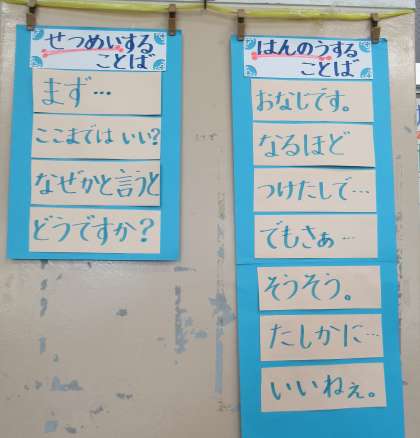 せつめいする
ことば
まず…
ここまでは いい?
なぜかと言うと
どうですか?
はんのうする
ことば
おなじです。
なるほど
つけたしで…
でもさぁ…
そうそう。
たしかに…
いいねぇ。